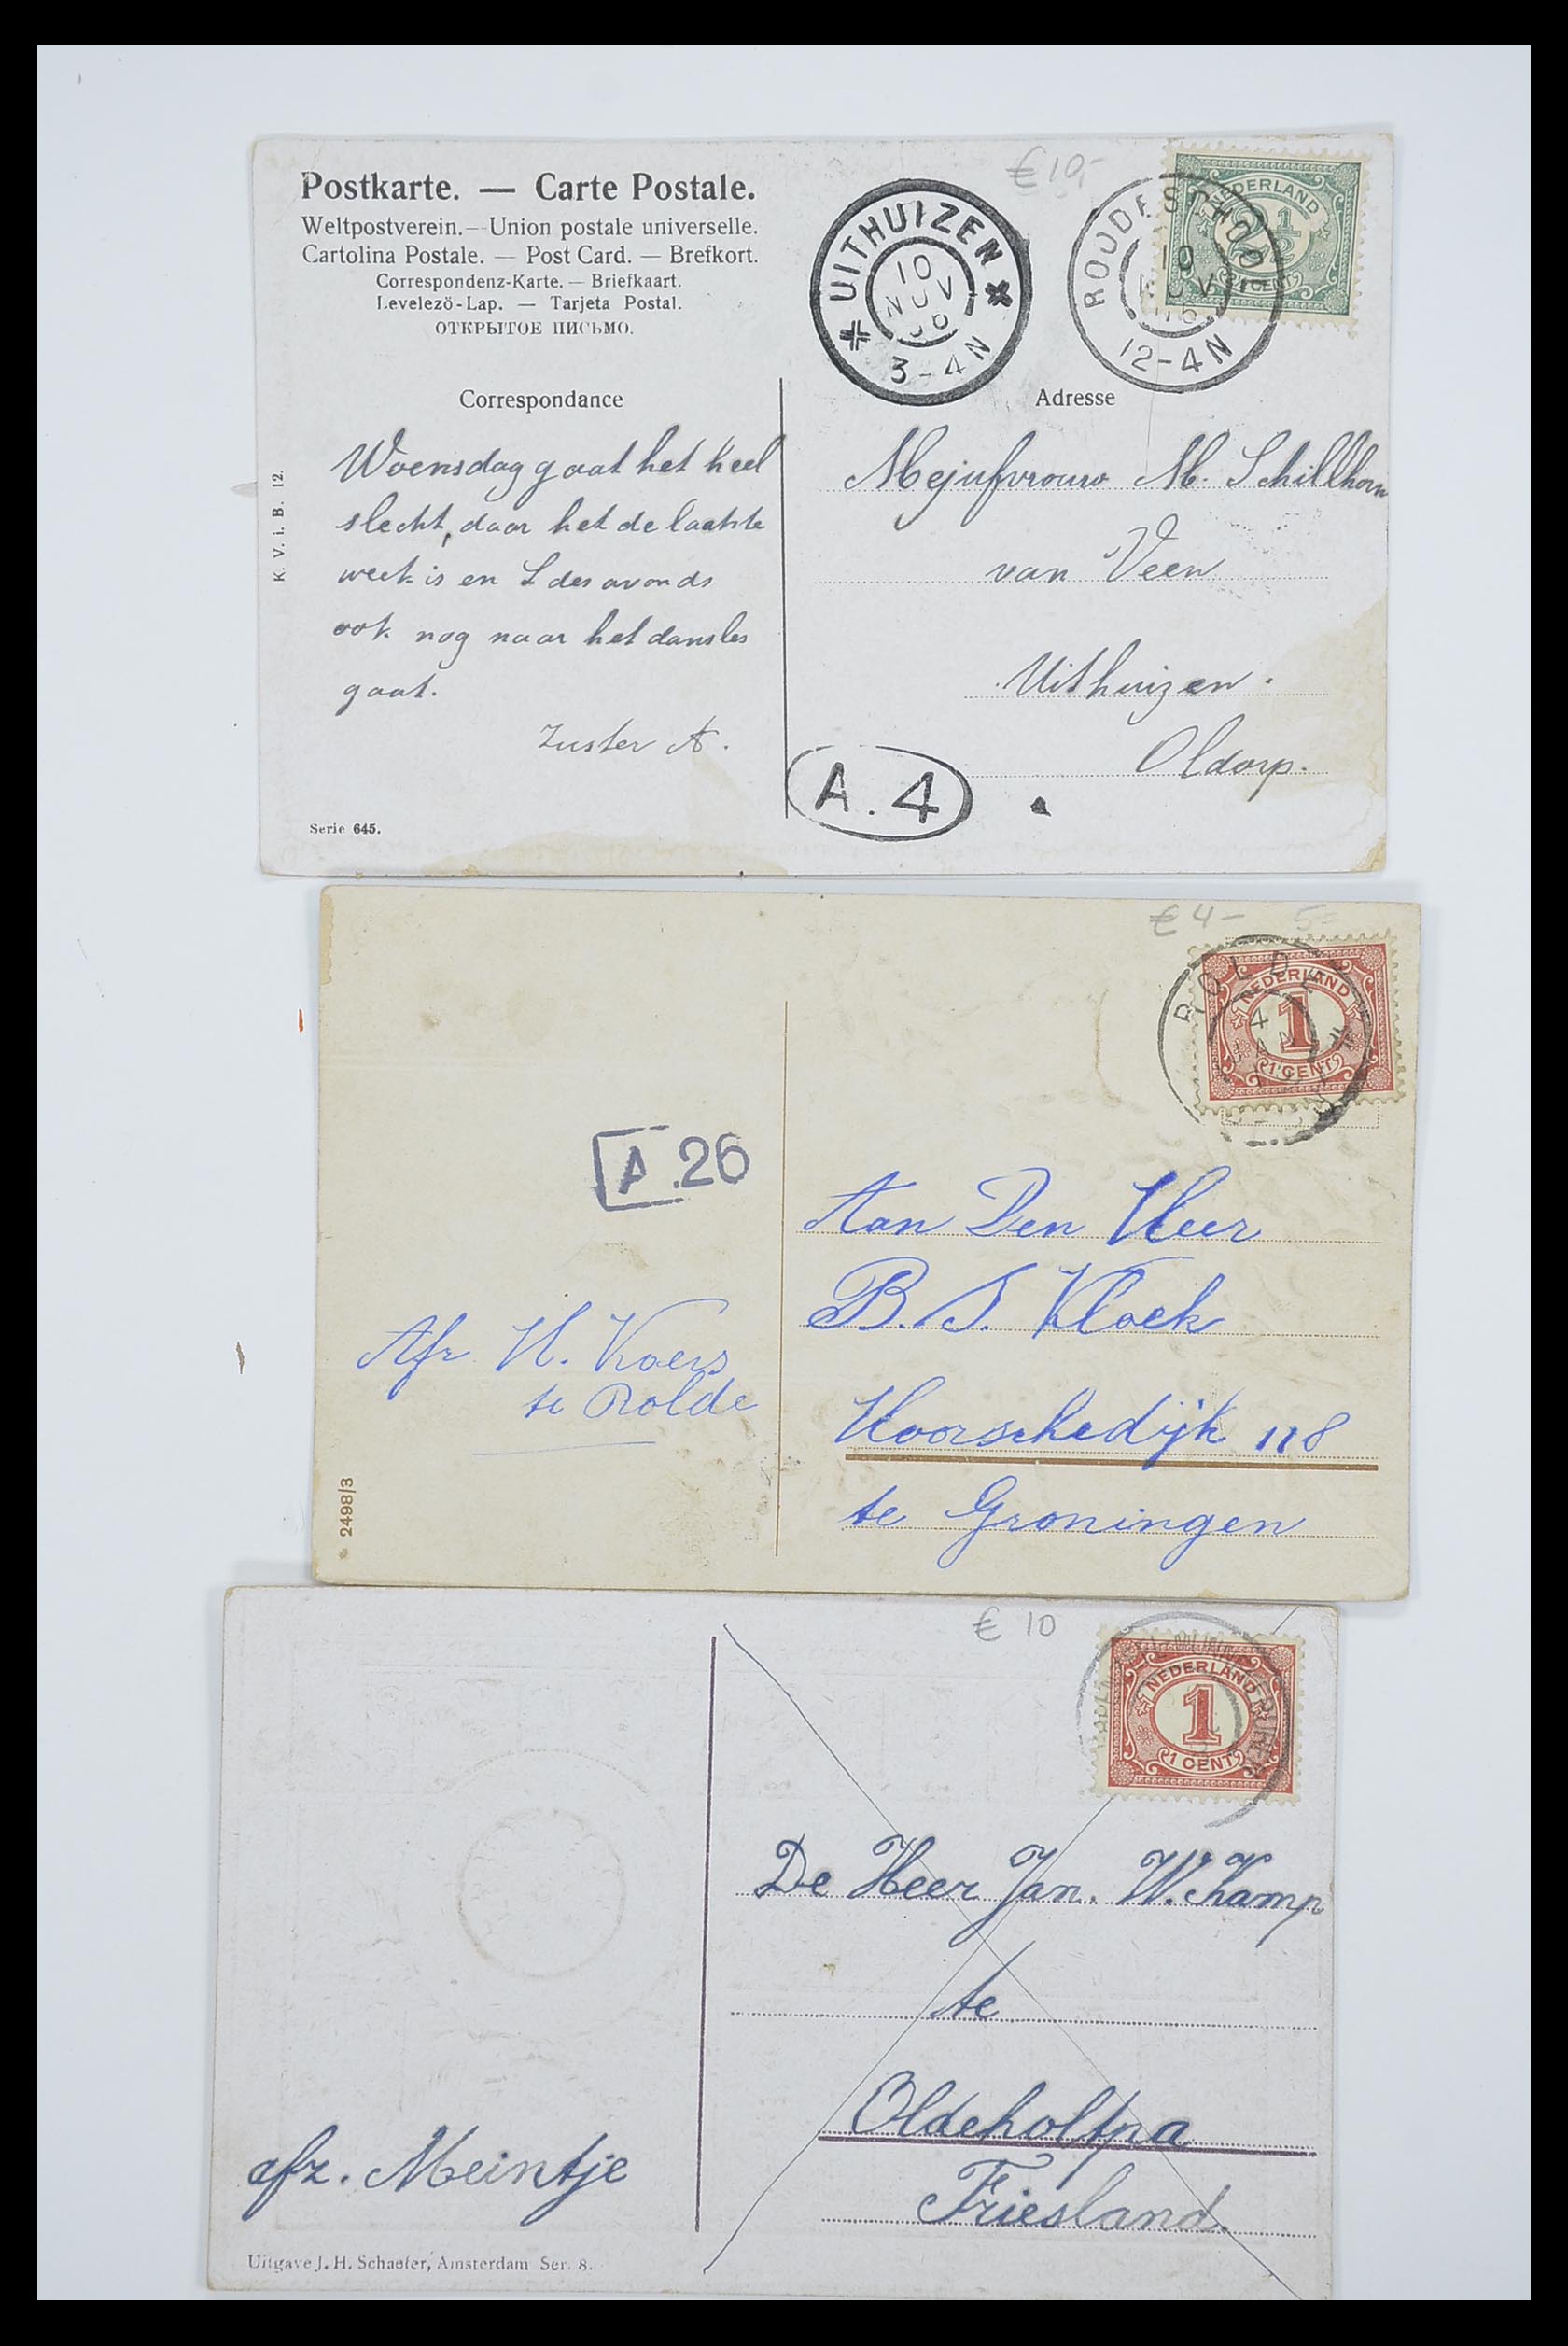 €10,-
Postkarte. — Carte Postale.
Weltpostverein. — Union postale universelle.
Cartolina Postale. — Post Card. — Brefkort.
Correspondenz-Karte. — Briefkaart.
Levelezö-Lap. — Tarjeta Postal.
ОТКРЫТОЕ ПИСЬМО.
UITHUIZEN
10
NOV
06
3-4N
ROODESCHOOL
10
NOV
12-4N
NEDERLAND
2½
CENT
Correspondance
Adresse
Woensdag gaat het heel
slecht, daar het de laatste
week is en L des avonds
ook nog naar het dansles
gaat.
Zuster A.
Mejufvrouw M. Schillhorn
van Veen
Uithuizen.
Oldorp.
A.4
K. V. i. B. 12.
Serie 645.
€4- 5=
ROLDE
4
JAN
NEDERLAND
1
1 CENT
A.26
Aan Den Heer
B. S. Kloek
Hoorschedijk 118
te Groningen
Afz H. Koers
te Rolde
2498/3
€ 10
NEDERLAND
1
1 CENT
De Heer Jan. W. Kamp
te
Oldeholtpa
Friesland.
afz. Meintje
Uitgave J. H. Schaefer, Amsterdam Ser. 8.